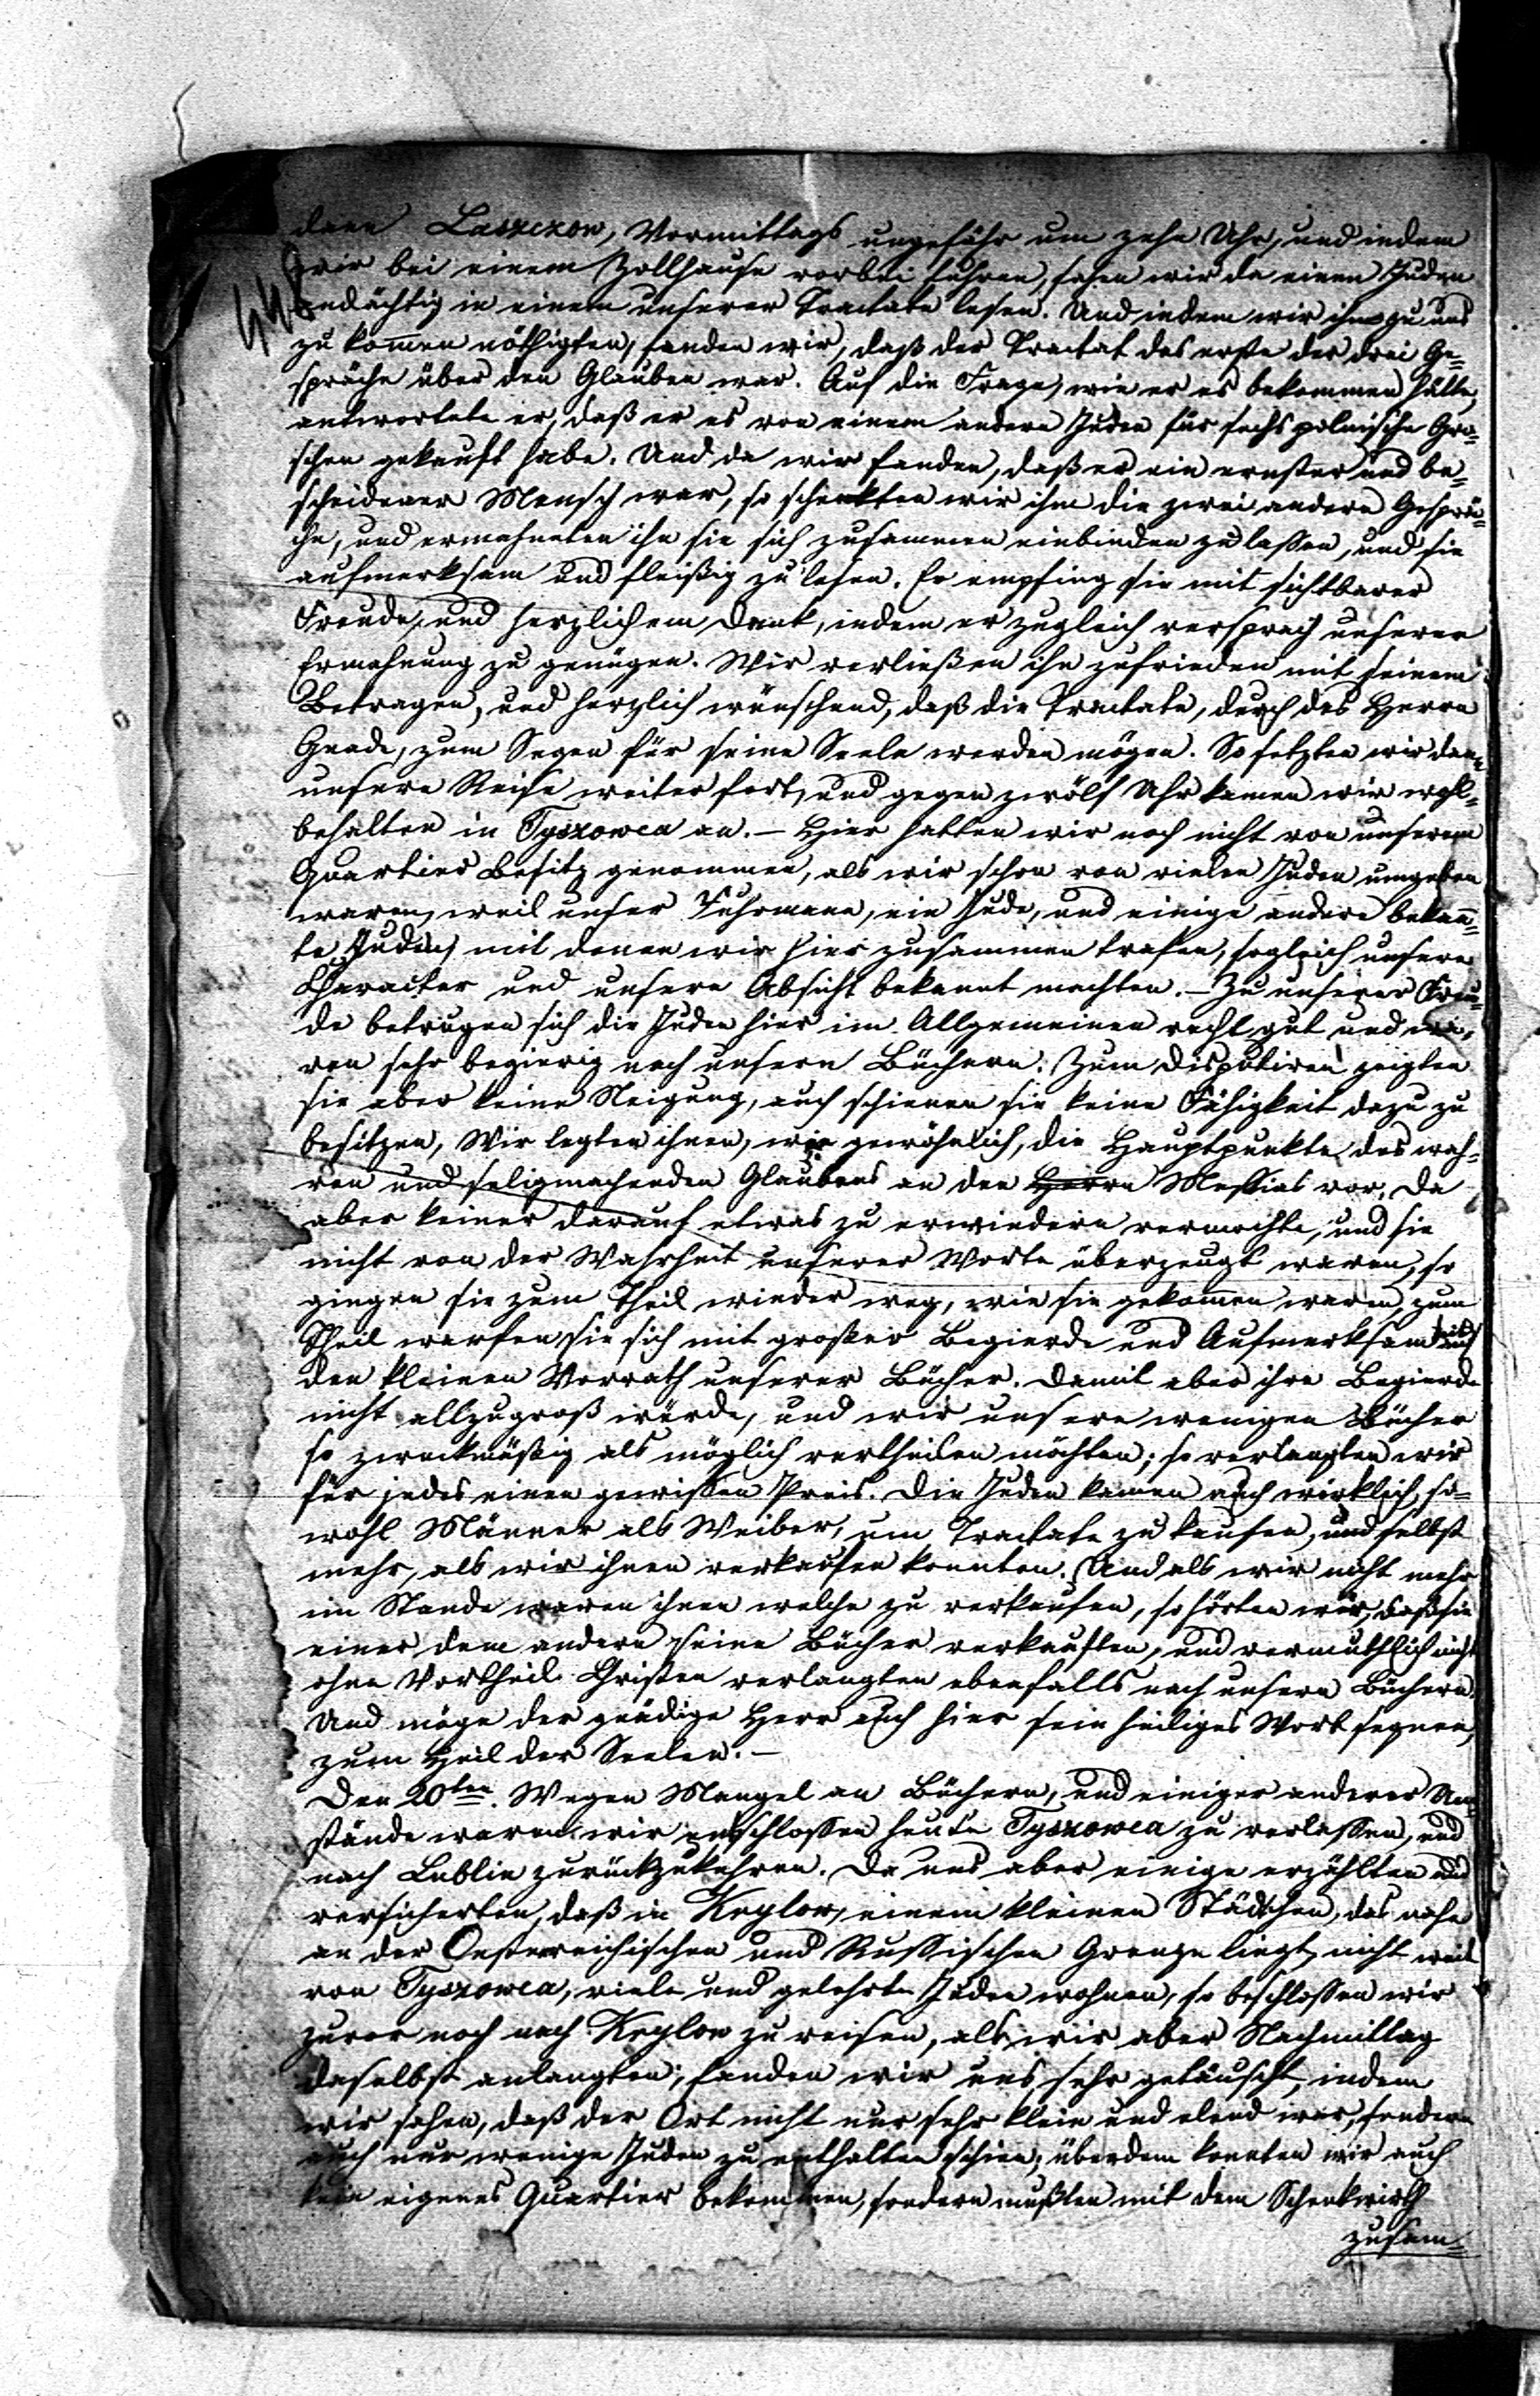 dann Laszczow, Vormittags ungefähr um zehn Uhr, und indem
wir bei einem Zollhause vorbei fuhren, sahen wir da einen Juden
andächtig in einem unserer Tractate lesen. Und indem wir ihn zu uns
zu kom̄en nöthigten, fanden wir, daß der Tractat das erste der drei Ge=
spräche über den Glauben war. Auf die Frage, wie er es bekommen hätte,
antwortete er, daß er es von einem andern Juden für sechs polnische Gro=
schen gekauft habe. Und da wir fanden, daß er ein ernster und be=
scheidener Mensch war, so schenkten wir ihm die zwei andern Gesprä=
che, und ermahnten ihn sie sich zusammen einbinden zu lassen, und sie
aufmerksam und fleißig zu lesen. Er empfing sie mit sichtbarer
Freude, und herzlichem Dank, indem er zugleich versprach unserer
Ermahnung zu genügen. Wir verließen ihn zufrieden mit seinem
Betragen, und herzlich wünschend, daß die Tractate, durch des Herrn
Gnade, zum Segen für seine Seele werden mögen. So setzten wir dan̄
unsere Reise weiter fort, und gegen zwölf Uhr kamen wir wohl=
behalten in Tyszowca an. – Hier hatten wir noch nicht von unserem
Quartier Besitz genommen, als wir schon von vielen Juden umgeben
waren, weil unser Fuhrmann, ein Jude, und einige andere bekan̄=
te Juden, mit denen wir hier zusammen trafen, sogleich unsern
Character und unsere Absicht bekannt machten. – Zu unserer Freu=
de betrugen sich die Juden hier im Allgemeinen recht gut und wa=
ren sehr begierig nach unsern Büchern. Zum Disputiren zeigten
sie aber keine Neigung, auch schienen sie keine Fähigkeit dazu zu
besitzen, Wir legten ihnen, wie gewöhnlich, die Hauptpunkte des wah=
ren und seligmachenden Glaubens an den Herrn Messias vor. Da
aber keiner darauf etwas zu erwiedern vermochte, und sie
nicht von der Wahrheit unserer Worte überzeugt waren, so
gingen sie zum Theil wieder weg, wie sie gekom̄en waren, zum
Theil warfen sie sich mit großer Begierde und Aufmerksamkeit auf
den kleinen Vorrath unserer Bücher. Damit aber ihre Begierde
nicht allzugroß würde, und wir unsere wenigen Bücher
so zweckmäßig als möglich vertheilen möchten; so verlangten wir
für jedes einen gewissen Preis. Die Juden kamen auch wirklich, so=
wohl Männer als Weiber, um Tractate zu kaufen, und selbst
mehr, als wir ihnen verkaufen konnten. Und als wir nicht mehr
im Stande waren ihnen welche zu verkaufen, so hörten wir, daß sie
einer dem andern seine Bücher verkauften, und vermuthlich nicht
ohne Vortheil. Christen verlangten ebenfalls nach unsern Büchern.
Und möge der gnädige Herr auch hier sein heiliges Wort segnen,
zum Heil der Seelen. –
Den 20ten. Wegen Mangel an Büchern, und einiger anderer Um=
stände waren wir entschlossen heute Tyszowca zu verlassen, und
nach Lublin zurückzukehren. Da uns aber einige erzählten und
versicherten, daß in Krylow, einem kleinen Städchen, das nahe
an der Oesterreichischen und Russischen Grenze liegt, nicht weit
von Tyszowca, viele und gelehrte Juden wohnen, so beschlossen wir
zuvor noch nach Krylow zu reisen, als wir aber Nachmittag
daselbst anlangten; fanden wir uns sehr getäuscht, indem
wir sahen, daß der Ort nicht nur sehr klein und elend war, sondern
auch nur wenige Juden zu enthalten schien; überdem konnten wir auch
kein eigenes Quartier bekommen, sondern mußten mit dem Schenkwirth
zusam=